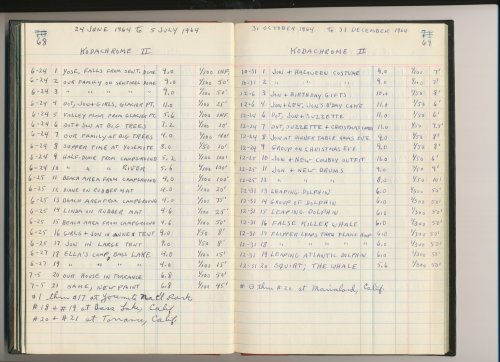 24 JUNE 1964 TO 5 JULY 1964
68
KODACHROME II
6-24 1 YOSE. FALLS FROM SENT. DOME 9.0 1/100 INF.
6-24 2 OUR FAMILY ON SENTINEL DOME 9.0 1/100 50'
6-24 3 " " " " 9.0 1/100 50'
6-24 4 DOT, JON & GIRLS, GLACIER PT. 11.0 1/100 25'
6-24 5 VALLEY FLOOR FROM GLACIER PT. 5.6 1/100 INF.
6-24 6 DOT & JON AT BIG TREES 1.2 1/100 10'
6-24 7 OUR FAMILY AT BIG TREES 4.0 1/100 40'
6-24 8 SUPPER TIME AT YOSEMITE 8.0 1/50 10'
6-24 9 HALF-DOME FROM CAMPGROUND 5.2 1/100 100'
6-24 10 " " " RIVER 5.6 1/100 100'
6-25 11 BEACH AREA FROM CAMPGROUND 4.0 1/100 100'
6-25 12 DIANE ON RUBBER MAT 4.0 1/100 20'
6-25 13 BEACH AREA FROM CAMPGROUND 4.0 1/100 75'
6-25 14 LINDA ON RUBBER MAT 4.6 1/100 25'
6-25 15 BEACH AREA FROM CAMPGROUND 4.6 1/100 50'
6-25 16 GIRLS & JON IN TENT 4.0 1/50 8'
6-25 17 JON IN LARGE TENT 9.0 1/50 8'
6-27 18 ELLA'S CAMP, BASS LAKE 4.0 1/100 15'
6-27 19 " " " 4.0 1/100 15'
7-5 20 OUR HOUSE IN TORRANCE 6.8 1/100 50'
7-5 21 SAME, NEW PAINT 6.8 1/100 45'
#1 thru #17 at Yosemite Nat'l Park
#18 & #19 at Bass Lake, Calif
#20 & #21 at Torrance, Calif.
31 OCTOBER 1964 TO 31 DECEMBER 1964
69
KODACHROME II
10-31 1 JON & HALOWEEN COSTUME 9.0 1/50 7'
10-31 2 " " " 9.0 7'
12-6 3 JON & BIRTHDAY GIFTS 10.0 1/50 8'
12-6 4 JON & JON'S B'DAY CAKE 11.0 1/50 6'
6 DOT, JON & SUZZETTE 11.0 1/50 6'
7 DOT, SUZZETTE & CHRISTMAS 11.0 7'
8 JON AT DINNER TABLE XMAS EVE 9.0 8'
9 GROUP ON CHRISTMAS EVE 9.0 8'
10 JON & NEW COWBOY OUTFIT 11.0 1/50 6'
11 JON & NEW DRUMS 9.0 1/50 8'
12 " " " 8.0 1/50 10'
12-31 13 LEAPING DOLPHIN 6.0 50'
12-31 14 GROUP OF DOLPHIN 6.0 50'
12-31 15 LEAPING DOLPHIN 6.0 50'
12-31 16 FALSE KILLER WHALE 6.0 50'
12-31 17 FLIPPER LEAPS THRU FLAME HOOP 6.0 50'
12-31 18 " " " " 6.0 50'
12-31 19 LEAPING ATLANTIC DOLPHIN 6.0 50'
12-31 20 SQUIRT, THE WHALE 5.6 50'
thru #20 at Marineland, Calif.